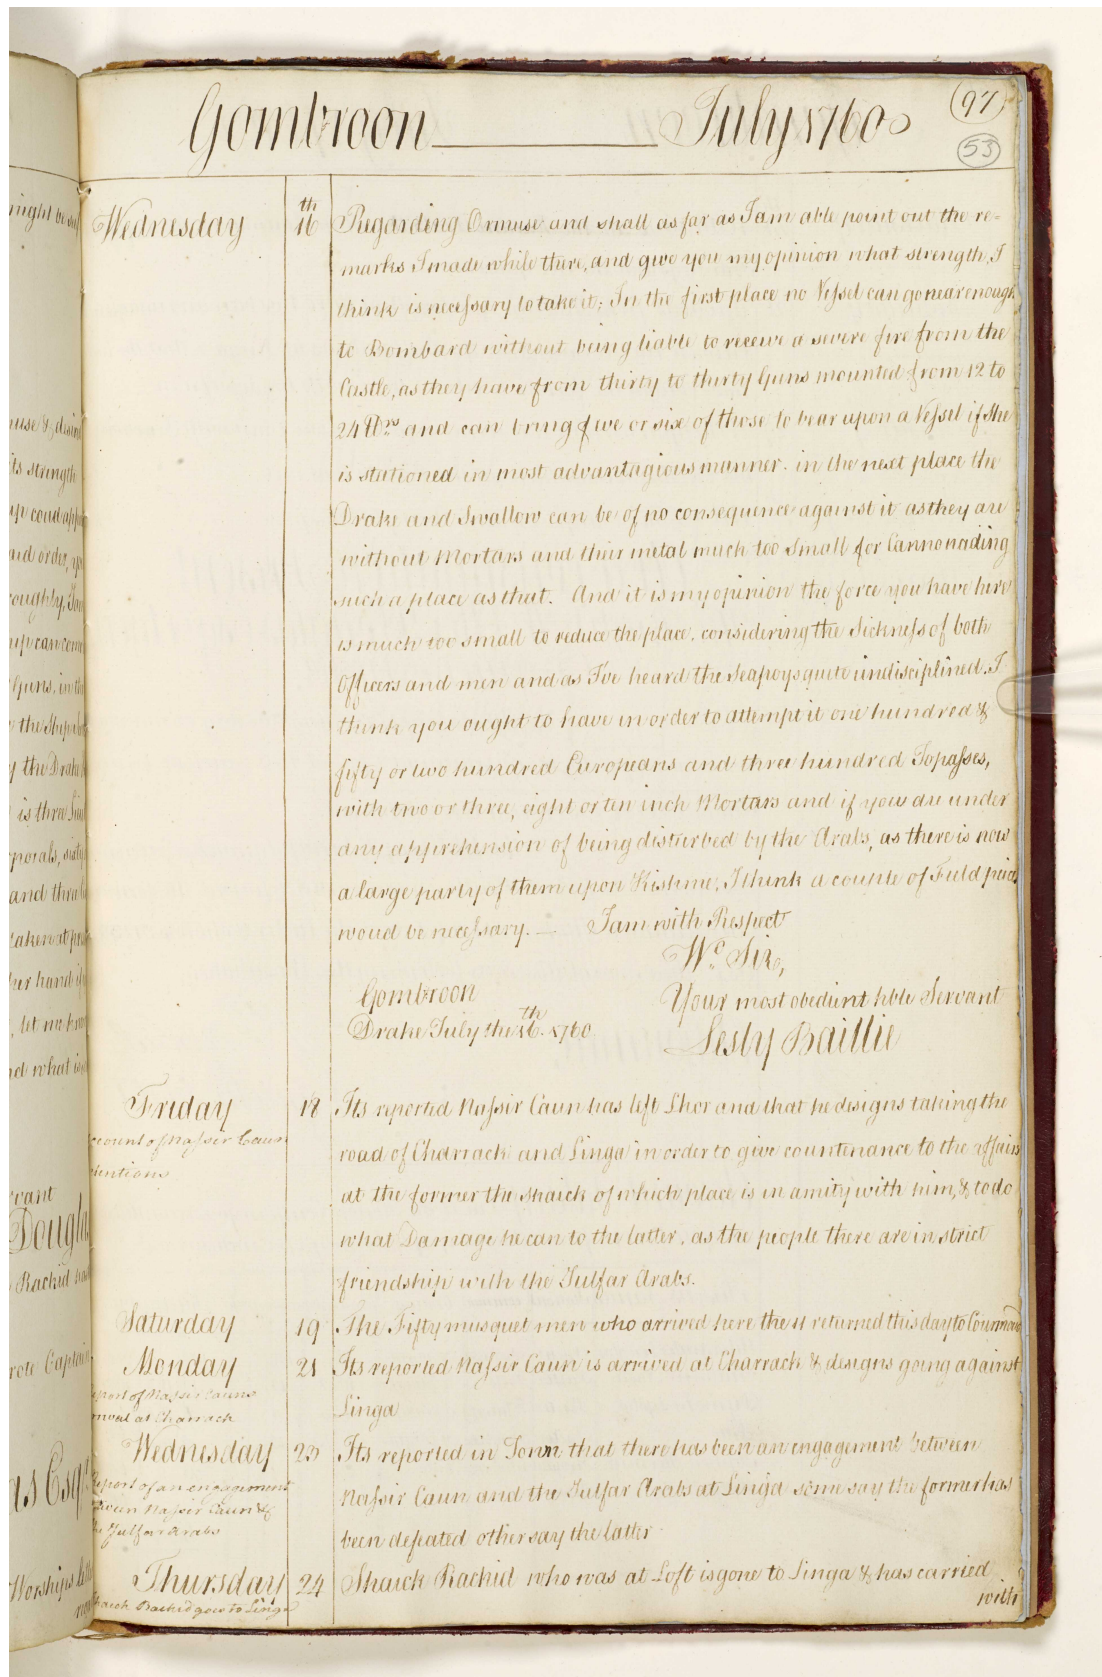 Gombroon July 1760
(97)
53
Wednesday 16th Regarding Ormuse and shall as far as I am able point out the re=
marks I made while there, and give you my opinion what strength, I
think is necessary to take it; In the first place no Vessel can go near enough
to Bombard without being liable to receive a severe fire from the
Castle, as they have from thirty to thirty Guns mounted from 12 to
24 Pdrs and can bring five or six of those to bear upon a Vessel if she
is stationed in most advantagious manner. in the next place the
Drake and Swallow can be of no consequence against it as they are
without Mortars and their metal much too small for Cannonading
such a place as that. And it is my opinion the force you have here
is much too small to reduce the place, considering the Sickness of both
Officers and men and as I've heard the Seapoys quite undisciplined. I
think you ought to have in order to attempt it one hundred &
fifty or two hundred Europeans and three hundred Topasses,
with two or three, eight or ten inch Mortars and if you are under
any apprehension of being disturbed by the Arabs, as there is now
a large party of them upon Kishme, I think a couple of Field pieces
woud be necessary. — I am with Respect
Wo. Sir,
Gombroon Your most obedient hble Servant
Drake July the 16th. 1760 Lesly Baillie
Friday 18 Its reported Nassir Caun has left Lhor and that he designs taking the
road of Charrack and Linga in order to give countenance to the affairs
ccount of Nassir Caun
tentions
at the former the Shaick of which place is in amity with him, & to do
what Damage he can to the latter, as the people there are in strict
friendship with the Julfar Arabs.
Saturday 19 The Fifty musquet men who arrived here the 11 returned this day to Courmood
Monday 21 Its reported Nassir Caun is arrived at Charrack & designs going against
Linga
eport of Nassir Cauns
rrival at Charrack
Wednesday 23 Its reported in Town that there has been an engagement between
Nassir Caun and the Julfar Arabs at Linga some say the former has
been defeated other say the latter
Report of an engagement
etween Nassir Caun &
he Julfar Arabs
Thursday 24 Shaick Rachid who was at Loft is gone to Linga & has carried
with
haick Rachid goes to Linga